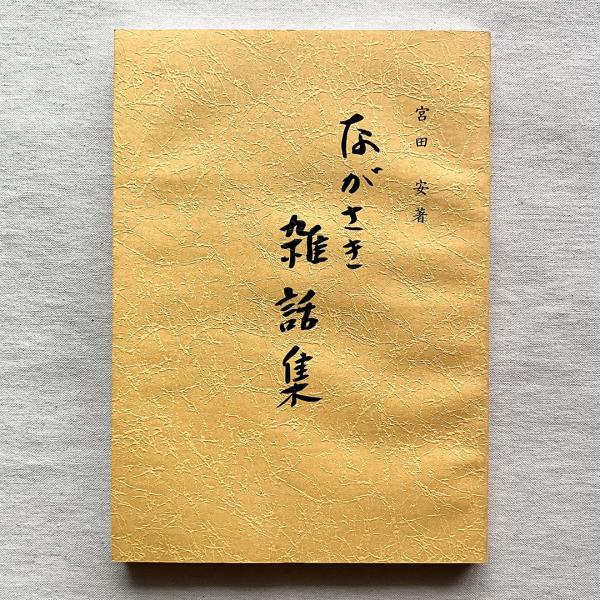 宮田安著
ながさき
雑話集